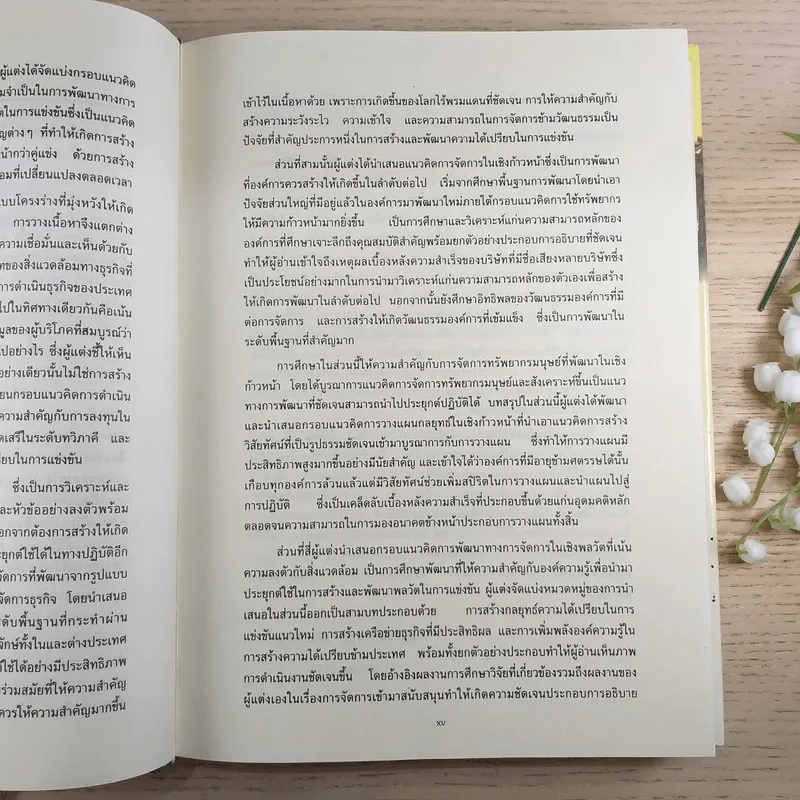 ผู้แต่งได้จัดแบ่งกรอบแนวคิด
มจำเป็นในการพัฒนาทางการ
ตในการแข่งขันซึ่งเป็นแนวคิด
ญต่างๆ ที่ทำให้เกิดการสร้าง
น้ากว่าคู่แข่ง ด้วยการสร้าง
อมที่เปลี่ยนแปลงตลอดเวลา
แบบโครงร่างที่มุ่งหวังให้เกิด
การวางเนื้อหาจึงแตกต่าง
ความเชื่อมั่นและเห็นด้วยกับ
ทของสิ่งแวดล้อมทางธุรกิจที่
การดำเนินธุรกิจของประเทศ
ไปในทิศทางเดียวกันคือเน้น
มูลของผู้บริโภคที่สมบูรณ์ว่า
ปอย่างไร ซึ่งผู้แต่งชี้ให้เห็น
อย่างเดียวนั้นไม่ใช่การสร้าง
ยนกรอบแนวคิดการดำเนิน
ความสำคัญกับการลงทุนใน
ดเสรีในระดับทวิภาคี และ
รียบในการแข่งขัน
ซึ่งเป็นการวิเคราะห์และ
ละหัวข้ออย่างลงตัวพร้อม
อกจากต้องการสร้างให้เกิด
ยุกต์ใช้ได้ในทางปฏิบัติอีก
จัดการที่พัฒนาจากรูปแบบ
จัดการธุรกิจ โดยนำเสนอ
ะดับพื้นฐานที่กระทำผ่าน
จักษ์ทั้งในและต่างประเทศ
ใช้ได้อย่างมีประสิทธิภาพ
ร่วมสมัยที่ให้ความสำคัญ
ควรให้ความสำคัญมากขึ้น
เข้าไว้ในเนื้อหาด้วย เพราะการเกิดขึ้นของโลกไร้พรมแดนที่ชัดเจน การให้ความสำคัญกับ
สร้างความระวังระไว ความเข้าใจ และความสามารถในการจัดการข้ามวัฒนธรรมเป็น
ปัจจัยที่สำคัญประการหนึ่งในการสร้างและพัฒนาความได้เปรียบในการแข่งขัน
ส่วนที่สามนั้นผู้แต่งได้นำเสนอแนวคิดการจัดการในเชิงก้าวหน้าซึ่งเป็นการพัฒนา
ที่องค์การควรสร้างให้เกิดขึ้นในลำดับต่อไป เริ่มจากศึกษาพื้นฐานการพัฒนาโดยนำเอา
ปัจจัยส่วนใหญ่ที่มีอยู่แล้วในองค์การมาพัฒนาใหม่ภายใต้กรอบแนวคิดการใช้ทรัพยากร
ให้มีความก้าวหน้ามากยิ่งขึ้น เป็นการศึกษาและวิเคราะห์แก่นความสามารถหลักของ
องค์การที่ศึกษาเจาะลึกถึงคุณสมบัติสำคัญพร้อมยกตัวอย่างประกอบการอธิบายที่ชัดเจน
ทำให้ผู้อ่านเข้าใจถึงเหตุผลเบื้องหลังความสำเร็จของบริษัทที่มีชื่อเสียงหลายบริษัทซึ่ง
เป็นประโยชน์อย่างมากในการนำมาวิเคราะห์แก่นความสามารถหลักของตัวเองเพื่อสร้าง
ให้เกิดการพัฒนาในลำดับต่อไป นอกจากนั้นยังศึกษาอิทธิพลของวัฒนธรรมองค์การที่มี
ต่อการจัดการ และการสร้างให้เกิดวัฒนธรรมองค์การที่เข้มแข็ง ซึ่งเป็นการพัฒนาใน
ระดับพื้นฐานที่สำคัญมาก
การศึกษาในส่วนนี้ให้ความสำคัญกับการจัดการทรัพยากรมนุษย์ที่พัฒนาในเชิง
ก้าวหน้า โดยได้บูรณาการแนวคิดการจัดการทรัพยากรมนุษย์และสังเคราะห์ขึ้นเป็นแนว
ทางการพัฒนาที่ชัดเจนสามารถนำไปประยุกต์ปฏิบัติได้ บทสรุปในส่วนนี้ผู้แต่งได้พัฒนา
และนำเสนอกรอบแนวคิดการวางแผนกลยุทธ์ในเชิงก้าวหน้าที่นำเอาแนวคิดการสร้าง
วิสัยทัศน์ที่เป็นรูปธรรมชัดเจนเข้ามาบูรณาการกับการวางแผน ซึ่งทำให้การวางแผนมี
ประสิทธิภาพสูงมากขึ้นอย่างมีนัยสำคัญ และเข้าใจได้ว่าองค์การที่มีอายุข้ามศตวรรษได้นั้น
เกือบทุกองค์การล้วนแล้วแต่มีวิสัยทัศน์ช่วยเพิ่มสปิริตในการวางแผนและนำแผนไปสู่
การปฏิบัติ ซึ่งเป็นเคล็ดลับเบื้องหลังความสำเร็จที่ประกอบขึ้นด้วยแก่นอุดมคติหลัก
ตลอดจนความสามารถในการมองอนาคตข้างหน้าประกอบการวางแผนทั้งสิ้น
ส่วนที่สี่ผู้แต่งนำเสนอกรอบแนวคิดการพัฒนาทางการจัดการในเชิงพลวัตที่เน้น
ความลงตัวกับสิ่งแวดล้อม เป็นการศึกษาพัฒนาที่ให้ความสำคัญกับองค์ความรู้เพื่อนำมา
ประยุกต์ใช้ในการสร้างและพัฒนาพลวัตในการแข่งขัน ผู้แต่งจัดแบ่งหมวดหมู่ของการนำ
เสนอในส่วนนี้ออกเป็นสามบทประกอบด้วย การสร้างกลยุทธ์ความได้เปรียบในการ
แข่งขันแนวใหม่ การสร้างเครือข่ายธุรกิจที่มีประสิทธิผล และการเพิ่มพลังองค์ความรู้ใน
การสร้างความได้เปรียบข้ามประเทศ พร้อมทั้งยกตัวอย่างประกอบทำให้ผู้อ่านเห็นภาพ
การดำเนินงานชัดเจนขึ้น โดยอ้างอิงผลงานการศึกษาวิจัยที่เกี่ยวข้องรวมถึงผลงานของ
ผู้แต่งเองในเรื่องการจัดการเข้ามาสนับสนุนทำให้เกิดความชัดเจนประกอบการอธิบาย
xv